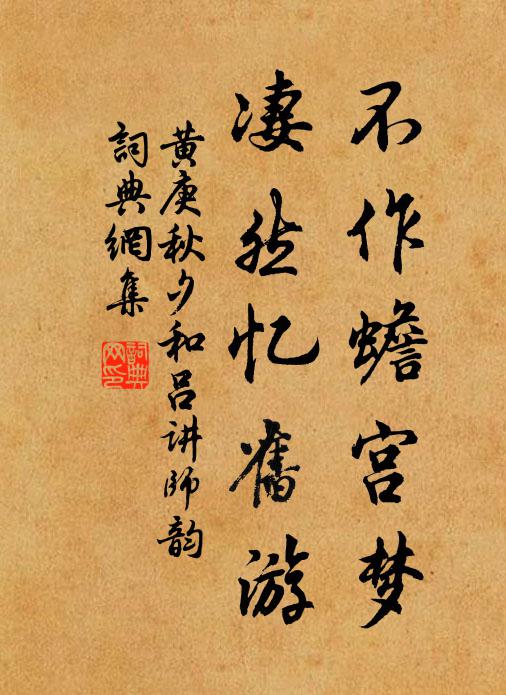 不作蟾宫梦
凄然忆舊游
黄庚秋夕和吕讲師韵
詞典網集
詞典
网印